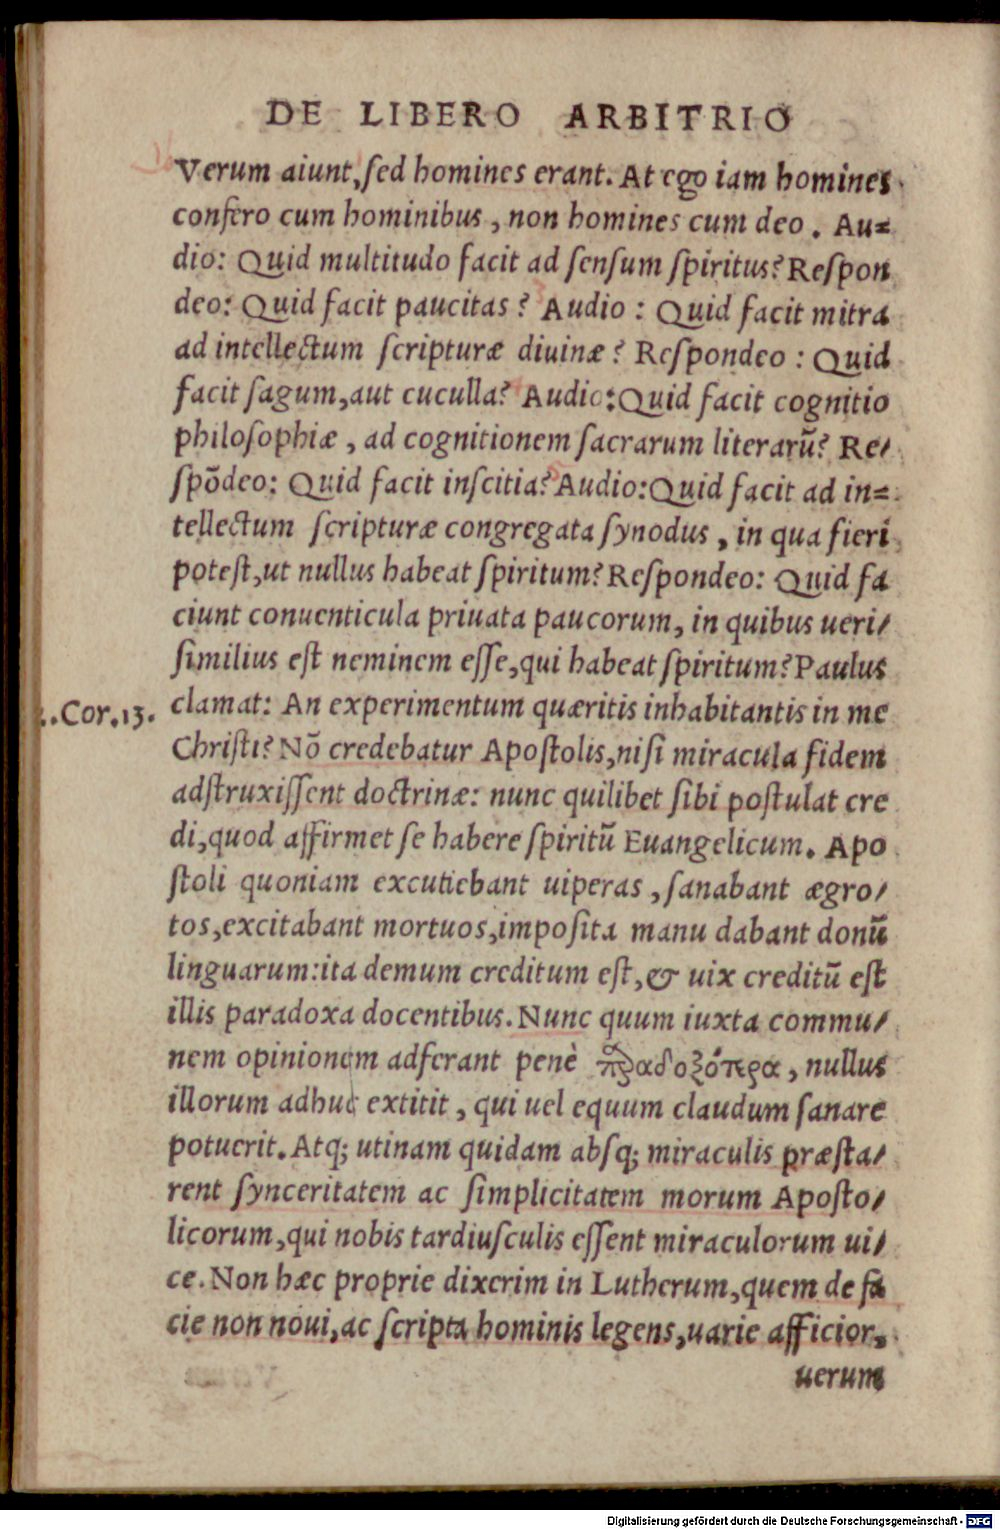 DE LIBERO ARBITRIO
Verum aiunt, sed homines erant. At ego iam homines
confero cum hominibus, non homines cum deo. Au=
dio: Quid multitudo facit ad sensum spiritus? Respon
deo: Quid facit paucitas? Audio: Quid facit mitra
ad intellectum scripturæ diuinæ? Respondeo: Quid
facit sagum, aut cuculla? Audio: Quid facit cognitio
philosophiæ, ad cognitionem sacrarum literarũ? Re/
spõdeo: Quid facit inscitia? Audio: Quid facit ad in=
tellectum scripturæ congregata synodus, in qua fieri
potest, ut nullus habeat spiritum? Respondeo: Quid fa
ciunt conuenticula priuata paucorum, in quibus ueri/
similius est neminem esse, qui habeat spiritum? Paulus
.Cor.13. clamat: An experimentum quæritis inhabitantis in me
Christi? Nõ credebatur Apostolis, nisi miracula fidem
adstruxissent doctrinæ: nunc quilibet sibi postulat cre
di, quod affirmet se habere spiritũ Euangelicum. Apo
stoli quoniam excutiebant uiperas, sanabant ægro/
tos, excitabant mortuos, imposita manu dabant donũ
linguarum: ita demum creditum est, & uix creditũ est
illis paradoxa docentibus. Nunc quum iuxta commu/
nem opinionem adferant penè παραδοξότερα, nullus
illorum adhuc extitit, qui uel equum claudum sanare
potuerit. Atq; utinam quidam absq; miraculis præsta/
rent synceritatem ac simplicitatem morum Aposto/
licorum, qui nobis tardiusculis essent miraculorum ui/
ce. Non hæc proprie dixerim in Lutherum, quem de fa
cie non noui, ac scripta hominis legens, uarie afficior,
uerum
Digitalisierung gefördert durch die Deutsche Forschungsgemeinschaft - DFG